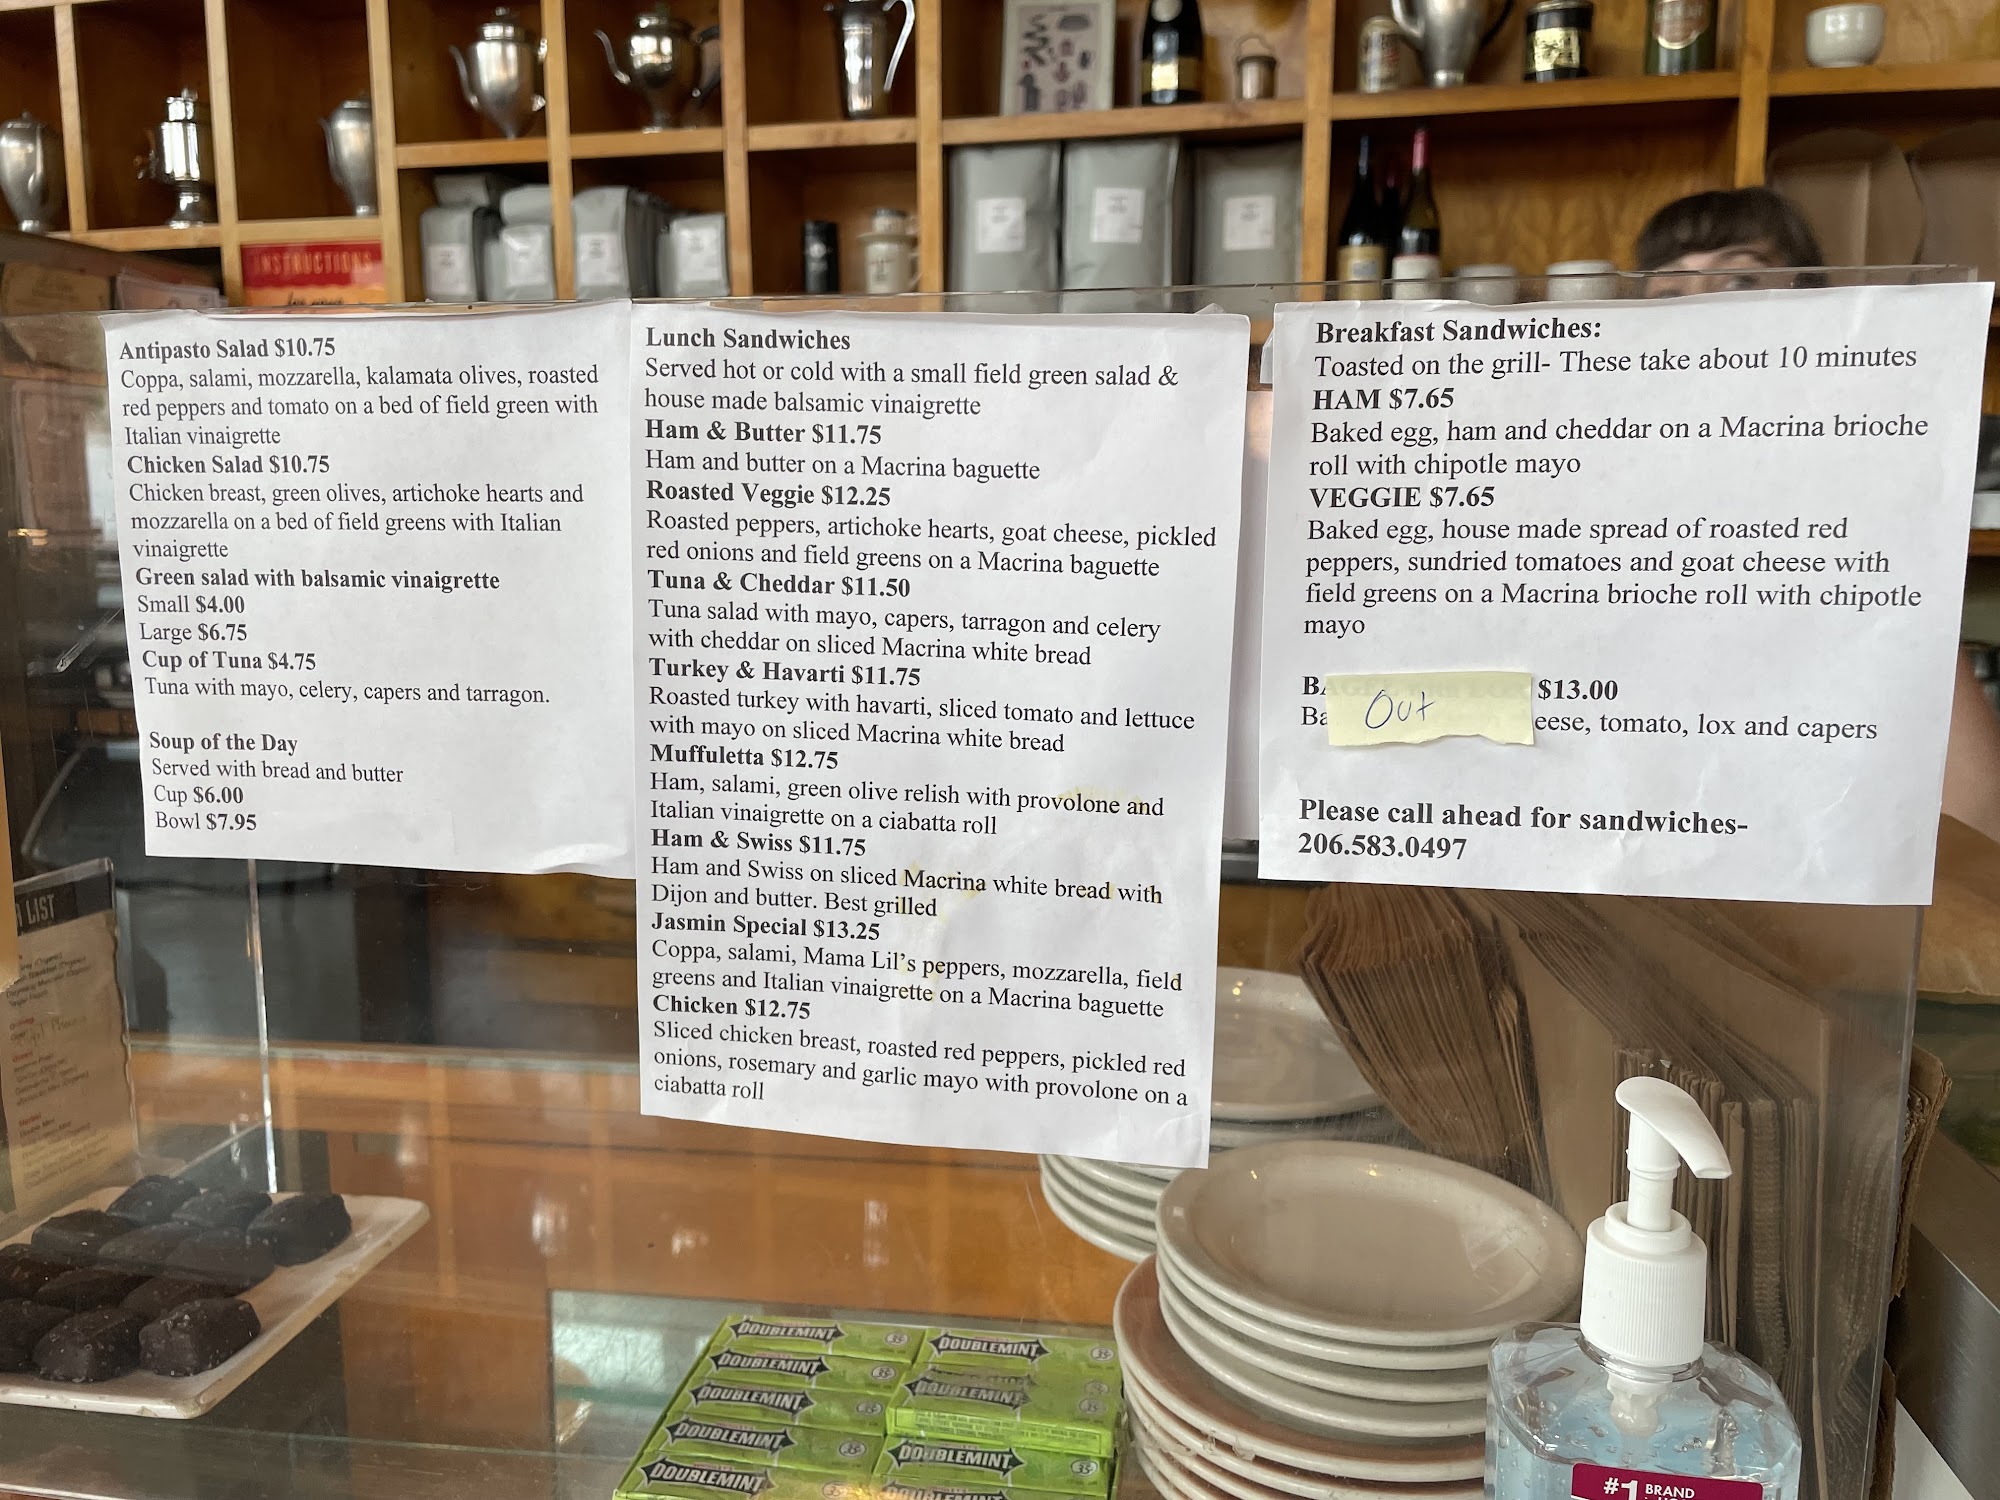 INSTRUCTIONS
Antipasto Salad $10.75
Coppa, salami, mozzarella, kalamata olives, roasted
red peppers and tomato on a bed of field green with
Italian vinaigrette
Chicken Salad $10.75
Chicken breast, green olives, artichoke hearts and
mozzarella on a bed of field greens with Italian
vinaigrette
Green salad with balsamic vinaigrette
Small $4.00
Large $6.75
Cup of Tuna $4.75
Tuna with mayo, celery, capers and tarragon.
Soup of the Day
Served with bread and butter
Cup $6.00
Bowl $7.95
Lunch Sandwiches
Served hot or cold with a small field green salad &
house made balsamic vinaigrette
Ham & Butter $11.75
Ham and butter on a Macrina baguette
Roasted Veggie $12.25
Roasted peppers, artichoke hearts, goat cheese, pickled
red onions and field greens on a Macrina baguette
Tuna & Cheddar $11.50
Tuna salad with mayo, capers, tarragon and celery
with cheddar on sliced Macrina white bread
Turkey & Havarti $11.75
Roasted turkey with havarti, sliced tomato and lettuce
with mayo on sliced Macrina white bread
Muffuletta $12.75
Ham, salami, green olive relish with provolone and
Italian vinaigrette on a ciabatta roll
Ham & Swiss $11.75
Ham and Swiss on sliced Macrina white bread with
Dijon and butter. Best grilled
Jasmin Special $13.25
Coppa, salami, Mama Lil's peppers, mozzarella, field
greens and Italian vinaigrette on a Macrina baguette
Chicken $12.75
Sliced chicken breast, roasted red peppers, pickled red
onions, rosemary and garlic mayo with provolone on a
ciabatta roll
Breakfast Sandwiches:
Toasted on the grill- These take about 10 minutes
HAM $7.65
Baked egg, ham and cheddar on a Macrina brioche
roll with chipotle mayo
VEGGIE $7.65
Baked egg, house made spread of roasted red
peppers, sundried tomatoes and goat cheese with
field greens on a Macrina brioche roll with chipotle
mayo
$13.00
Out
eese, tomato, lox and capers
Please call ahead for sandwiches-
206.583.0497
LIST
DOUBLEMINT
DOUBLEMINT
DOUBLEMINT
DOUBLEMINT
DOUBLEMINT
DOUBLEMINT
DOUBLEMINT
DOUBLEMINT
#1 BRAND